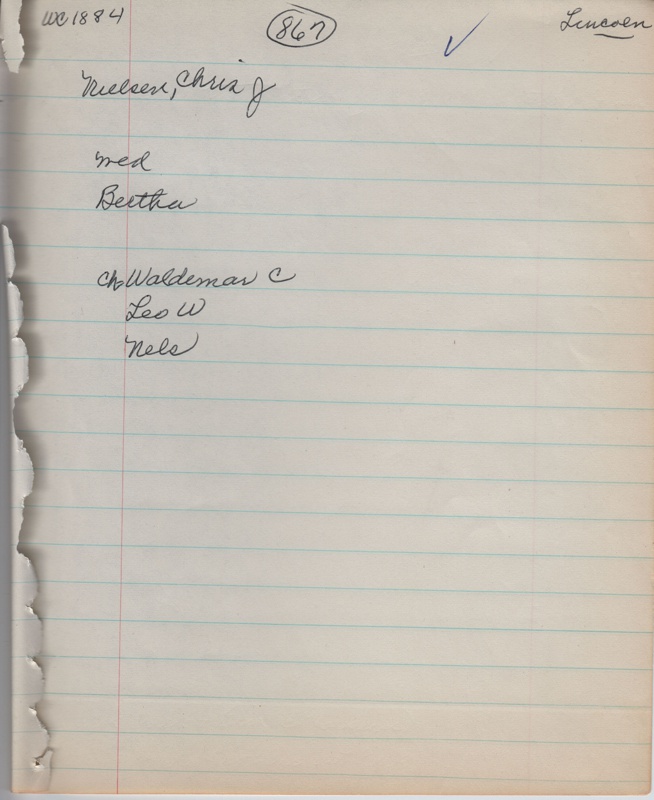 WC 1884
867
Lincoln
Nielsen, Chris J
med
Bertha
Ch Waldemar C
Leo W
Nels